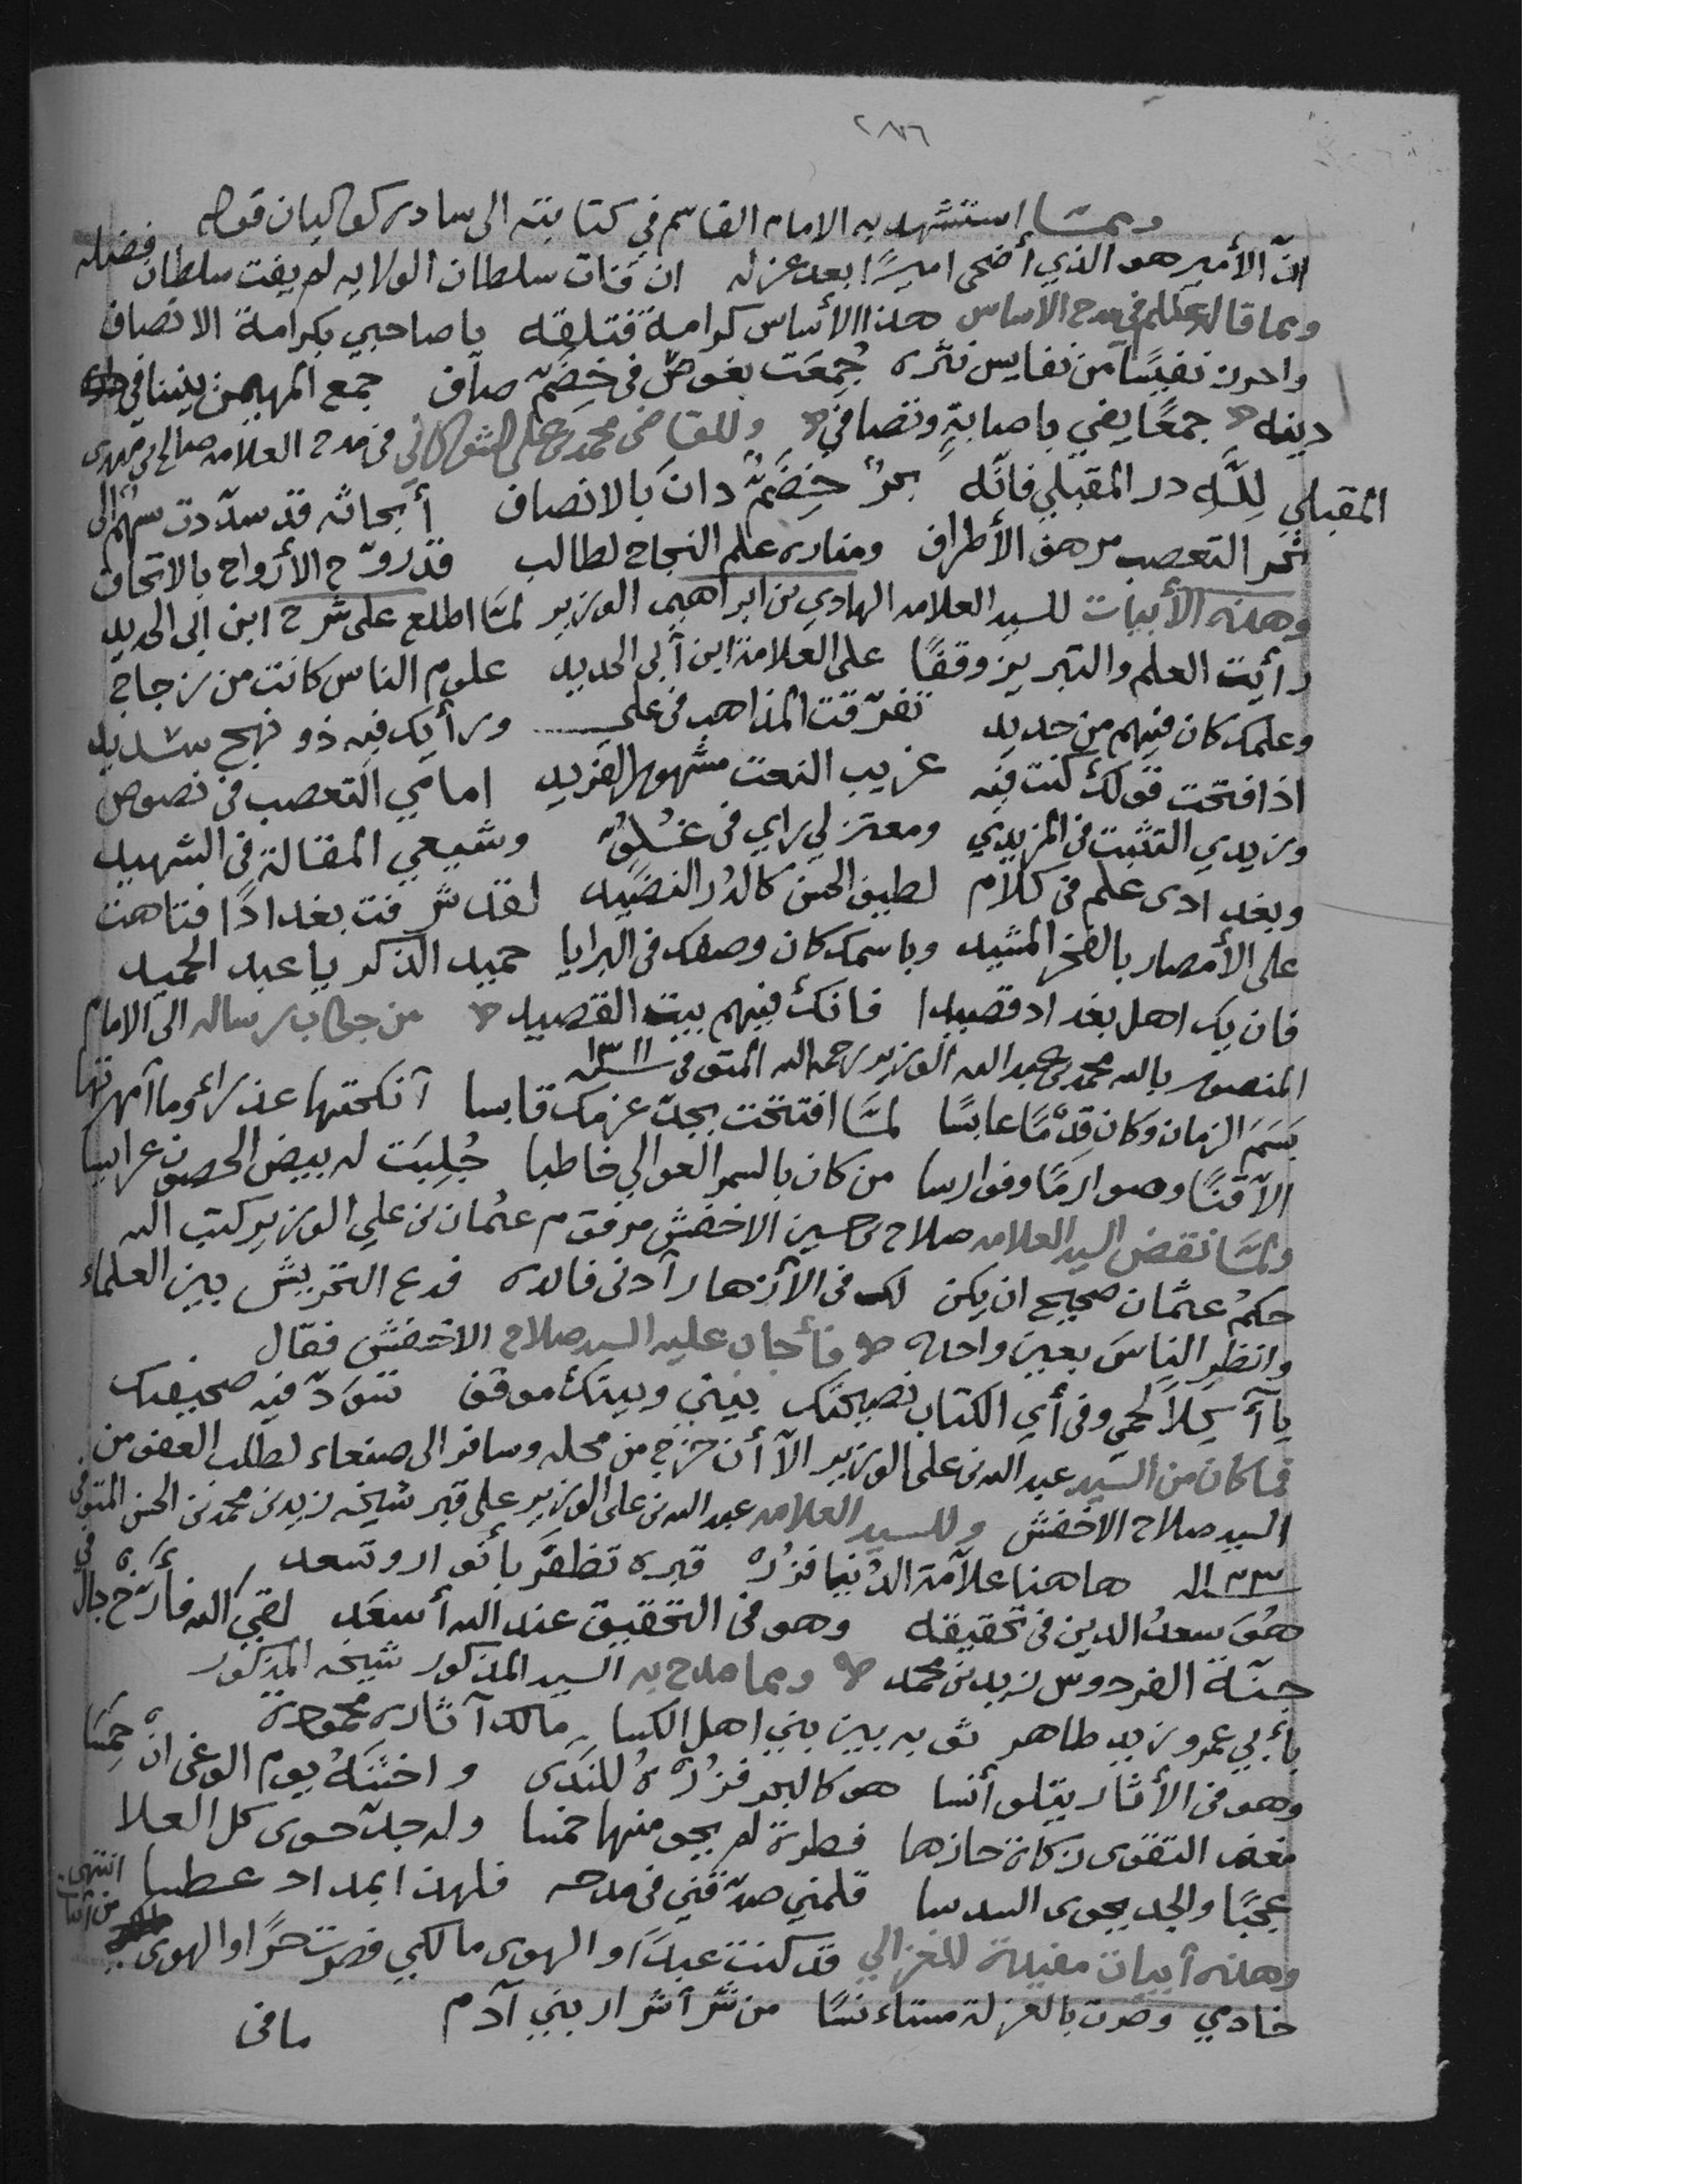 ٢٨٦
ومما استشهد به الامام القاسم في كتابته الى سادة كوكبان قوله
انّ الأمير هو الذي أضحى اميرًا بعد عزله ان فات سلطان الولايه لم يفت سلطان فضله
ومما قاله عللم في مدح الاساس هذا الأساس كرامة فتلقه يا صاحبي بكرامة الانصاف
واحرز نفيسًا من نفايس نثره جُمِعَت بغوصٍ في خِضَمّ صاف جمع المهيمن بيننا في
دينه جمعًا يفي بإصابةٍ وتصافي وللقاضي محمد بن علي الشوكاني في مدح العلامه صالح بن مهدي
المقبلي لِلَّهِ در المقبلي فانّه بحرٌ خِضَمٌّ دان بالانصاف أبحاثه قد سدّدت سهمًا الى
نحر التعصب مرهف الأطراف ومناره علم النجاح لطالب قد روّح الأرواح بالاتحاف
وهذه الأبيات للسيد العلامه الهادي بن ابراهيم الوزير لمّا اطلع على شرح ابن ابي الحديد
رأيت العلم والتبريز وقفًا على العلامة ابن أبي الحديد علوم الناس كانت من زجاج
وعلمك كان فيهم من حديد تفرّقت المذاهب في علي ورأيك فيه ذو نهج سديد
اذا فتحت قولك كنت فيه غريب النعت مشهور الفريد امامي التعصب في نصوص
وزيدي التثبت في المزيدي ومعتزلي راي في غلوٍّ وشيعي المقالة في الشهيد
وبغدادي علم في كلام لطيف الحسن كالدُر النضيد لقد شرفت بغدادًا فتاهت
على الأمصار بالفخر المشيد وباسمك كان وصفك في البرايا حميد الذكر يا عبد الحميد
فان يك اهل بغداد قصيدا فانك فيهم بيت القصيد من جواب رساله الى الامام
المنصور بالله محمد بن عبد الله الوزير رحمه الله المتوفى سنه
بَسَمَ الزمان وكان قِدْمًا عابسًا لمّا افتتحت بجدّ عزمك قابسا أنكحتها عذراء وما أمهرتها
الاّ قنًا وصوارمًا وفوارسا من كان بالسمر العوالي خاطبا جُلِيَت له بيض الحصون عرايسا
ولمّا نقض السيد العلامه صلاح بن حسين الاخفش مرقوم عثمان بن علي الوزير كتب اليه
حكمُ عثمان صحيح ان يكن لك في الأزهار أدنى فائده فدع التحريش بين العلماء
وانظرِ الناسَ بعينٍ واحده فأجاب عليه السيد صلاح الاخفش فقال
يا آكلاً لحمي وفي أي الكتاب نصيحتك بيني وبينك موقف تسودّ فيه صحيفتك
فما كان من السّيد عبد الله بن علي الوزير الاّ أن خرج من محله وسافر الى صنعاء لطلب العفو من
السيد صلاح الاخفش وللسيد العلامه عبد الله بن علي الوزير على قبر شيخه زيد بن محمد بن الحسن المتوفى
هاهنا علاّمة الدُنيا فزُر قبره تظفَر بأنوار وتسعد
هُوَ سعدُ الدين في تحقيقه وهو في التحقيق عند الله أسعَد لقي الله فأرّخ جاك في
جنّة الفردوس زيد بن محمد ومما مدح به السيد المذكور شيخه المذكور
بأبي عمرو زيد طاهر ثوبه بين بني اهل الكسا مالك آثاره محمودة
وهو في الأثار يتلو أنسا هو كالبحر فزُرْهُ للندَى واخشَهُ يوم الوغى ان حمسا
التقوى زكاة حازها فطرة لم يحو منها خمسا وله جدّ حوى كل العلا
عجبًا والجد يحوى السدسا قلمي صدّقني في مدحه فلهذا بمداد عطسا انتهى
وهذه أبيات مفيدة للغزالي قد كنت عبدًا والهوى مالكي فصرت حرًا والهوى
خادمي وصرت بالعزلة مستأنسًا من شر أشرار بني آدم
ما في